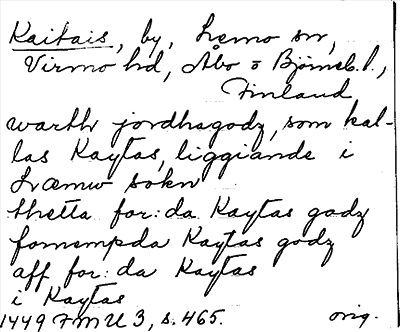 Kaitais, by, Lemo sn,
Virmo hd, Åbo o Björneb. l.,
Finland
warth jordhagodz, som kal-
las Kaytas, liggiande i
Læmo sokn
thetta for:da Kaytas godz
fornempda Kaytas godz
aff for:da Kaytas
i Kaytas
1449 FMU 3, s. 465. orig.